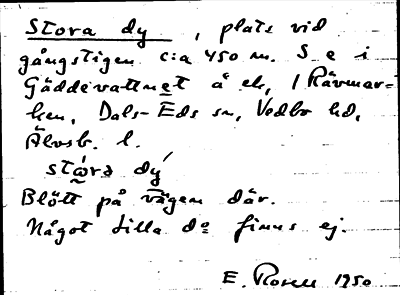 Stora dy, plats vid
gångstigen c:a 450 m. S e i
Gäddevattnet å ek, 1 Rävmar-
ken, Dals-Eds sn, Vedbo hd,
Älvsb. l.
stora dy
Blött på vägen där.
Något lilla do finns ej.
E. Rosell 1950